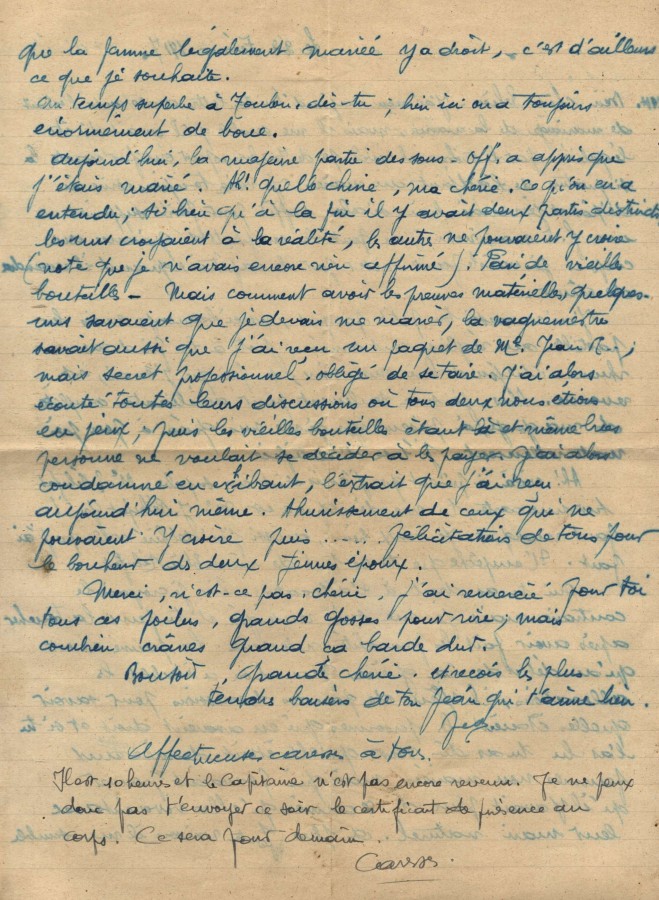 que la femme légalement mariée y a droit, c'est d'ailleurs
ce que je souhaite.
Un temps superbe à Toulon, dis-tu, bien ici on a toujours
énormément de boue.
Aujourd'hui, la majeure partie des sous-off. a appris que
j'étais marié. Ah! quelle chine, ma chérie. Ce qu'on en a
entendu; si bien qu'à la fin il y avait deux partis distincts
les uns croyaient à la réalité, les autre ne pouvaient y croire
(note que je n'avais encore rien affirmé). Pari de vieilles
bouteilles - Mais comment avoir les preuves matérielles, quelques-
uns savaient que je devais me marier, le vaguemestre
savait aussi que j'ai reçu un paquet de Me Jean
mais secret professionnel, obligé de se taire. J'ai alors
écouté toutes leurs discussions où tous deux nous étions
en jeux, puis les vieilles bouteilles étant là et même
personne ne voulant se décider à les payer, j'ai alors
condamné en exhibant, l'extrait que j'ai reçu
aujourd'hui même. Ahurissement de ceux qui ne
pouvaient y croire puis ..... félicitations de tous pour
le bonheur des deux jeunes époux.
Merci, n'est-ce pas, chérie, j'ai remercié pour toi
tous ces poilus, grands gosses pour rire, mais
combien crânes quand ça barde dur.
Bonsoir, grande chérie. et reçois les plus
tendres baisers de ton Jean qui t'aime bien.
Jean
Affectueuses caresses à tous.
Il est 10 heures et le Capitaine n'est pas encore revenu. Je ne peux
donc pas t'envoyer ce soir le certificat de présence au
corps. Ce sera pour demain.
Caresses.